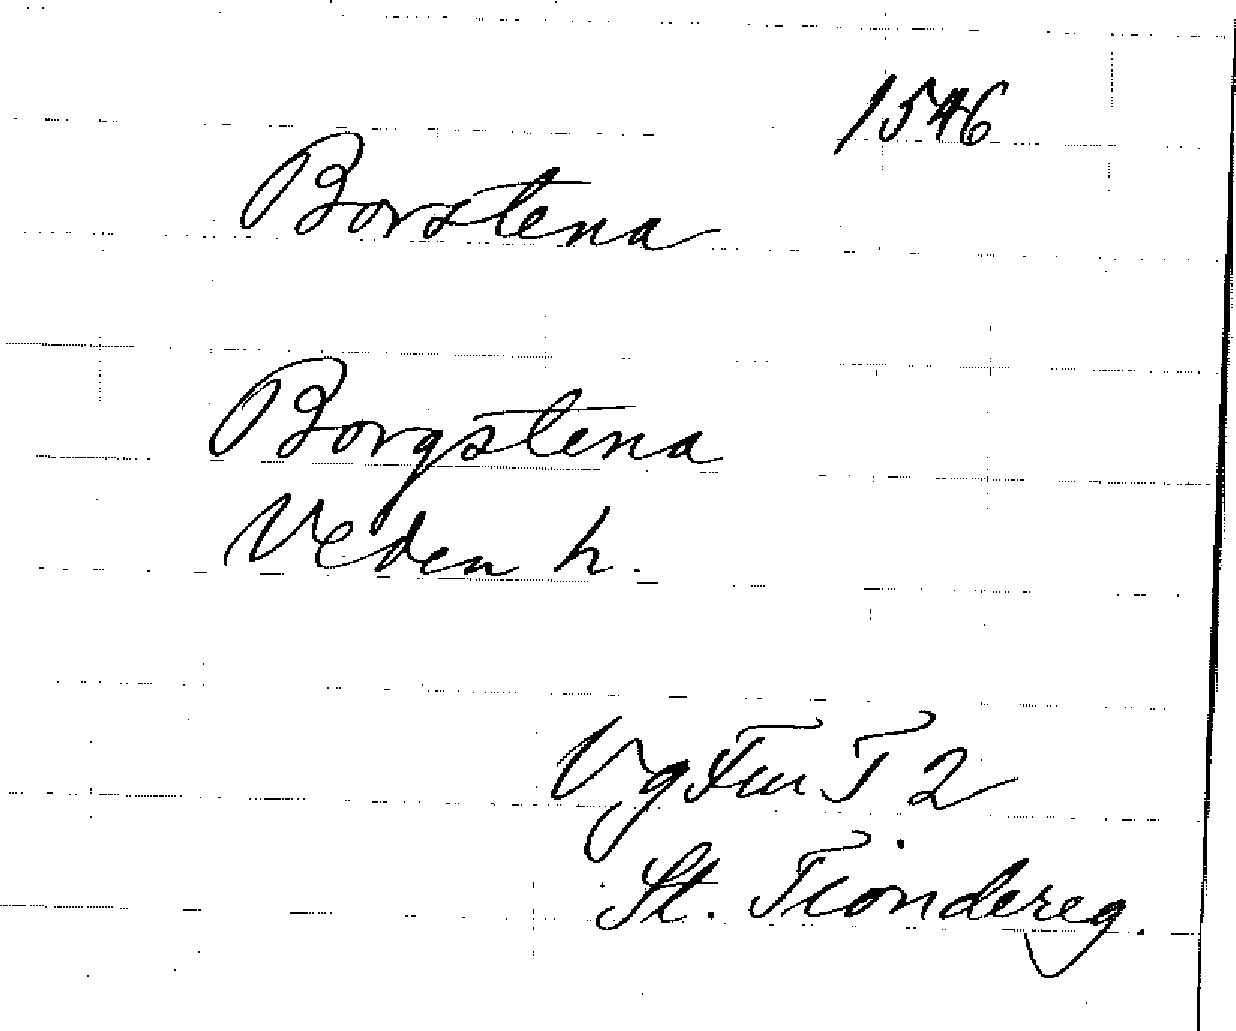 1546
Borstena
Borgstena
Veden h.
Vg T 2
St. Tiondereg.